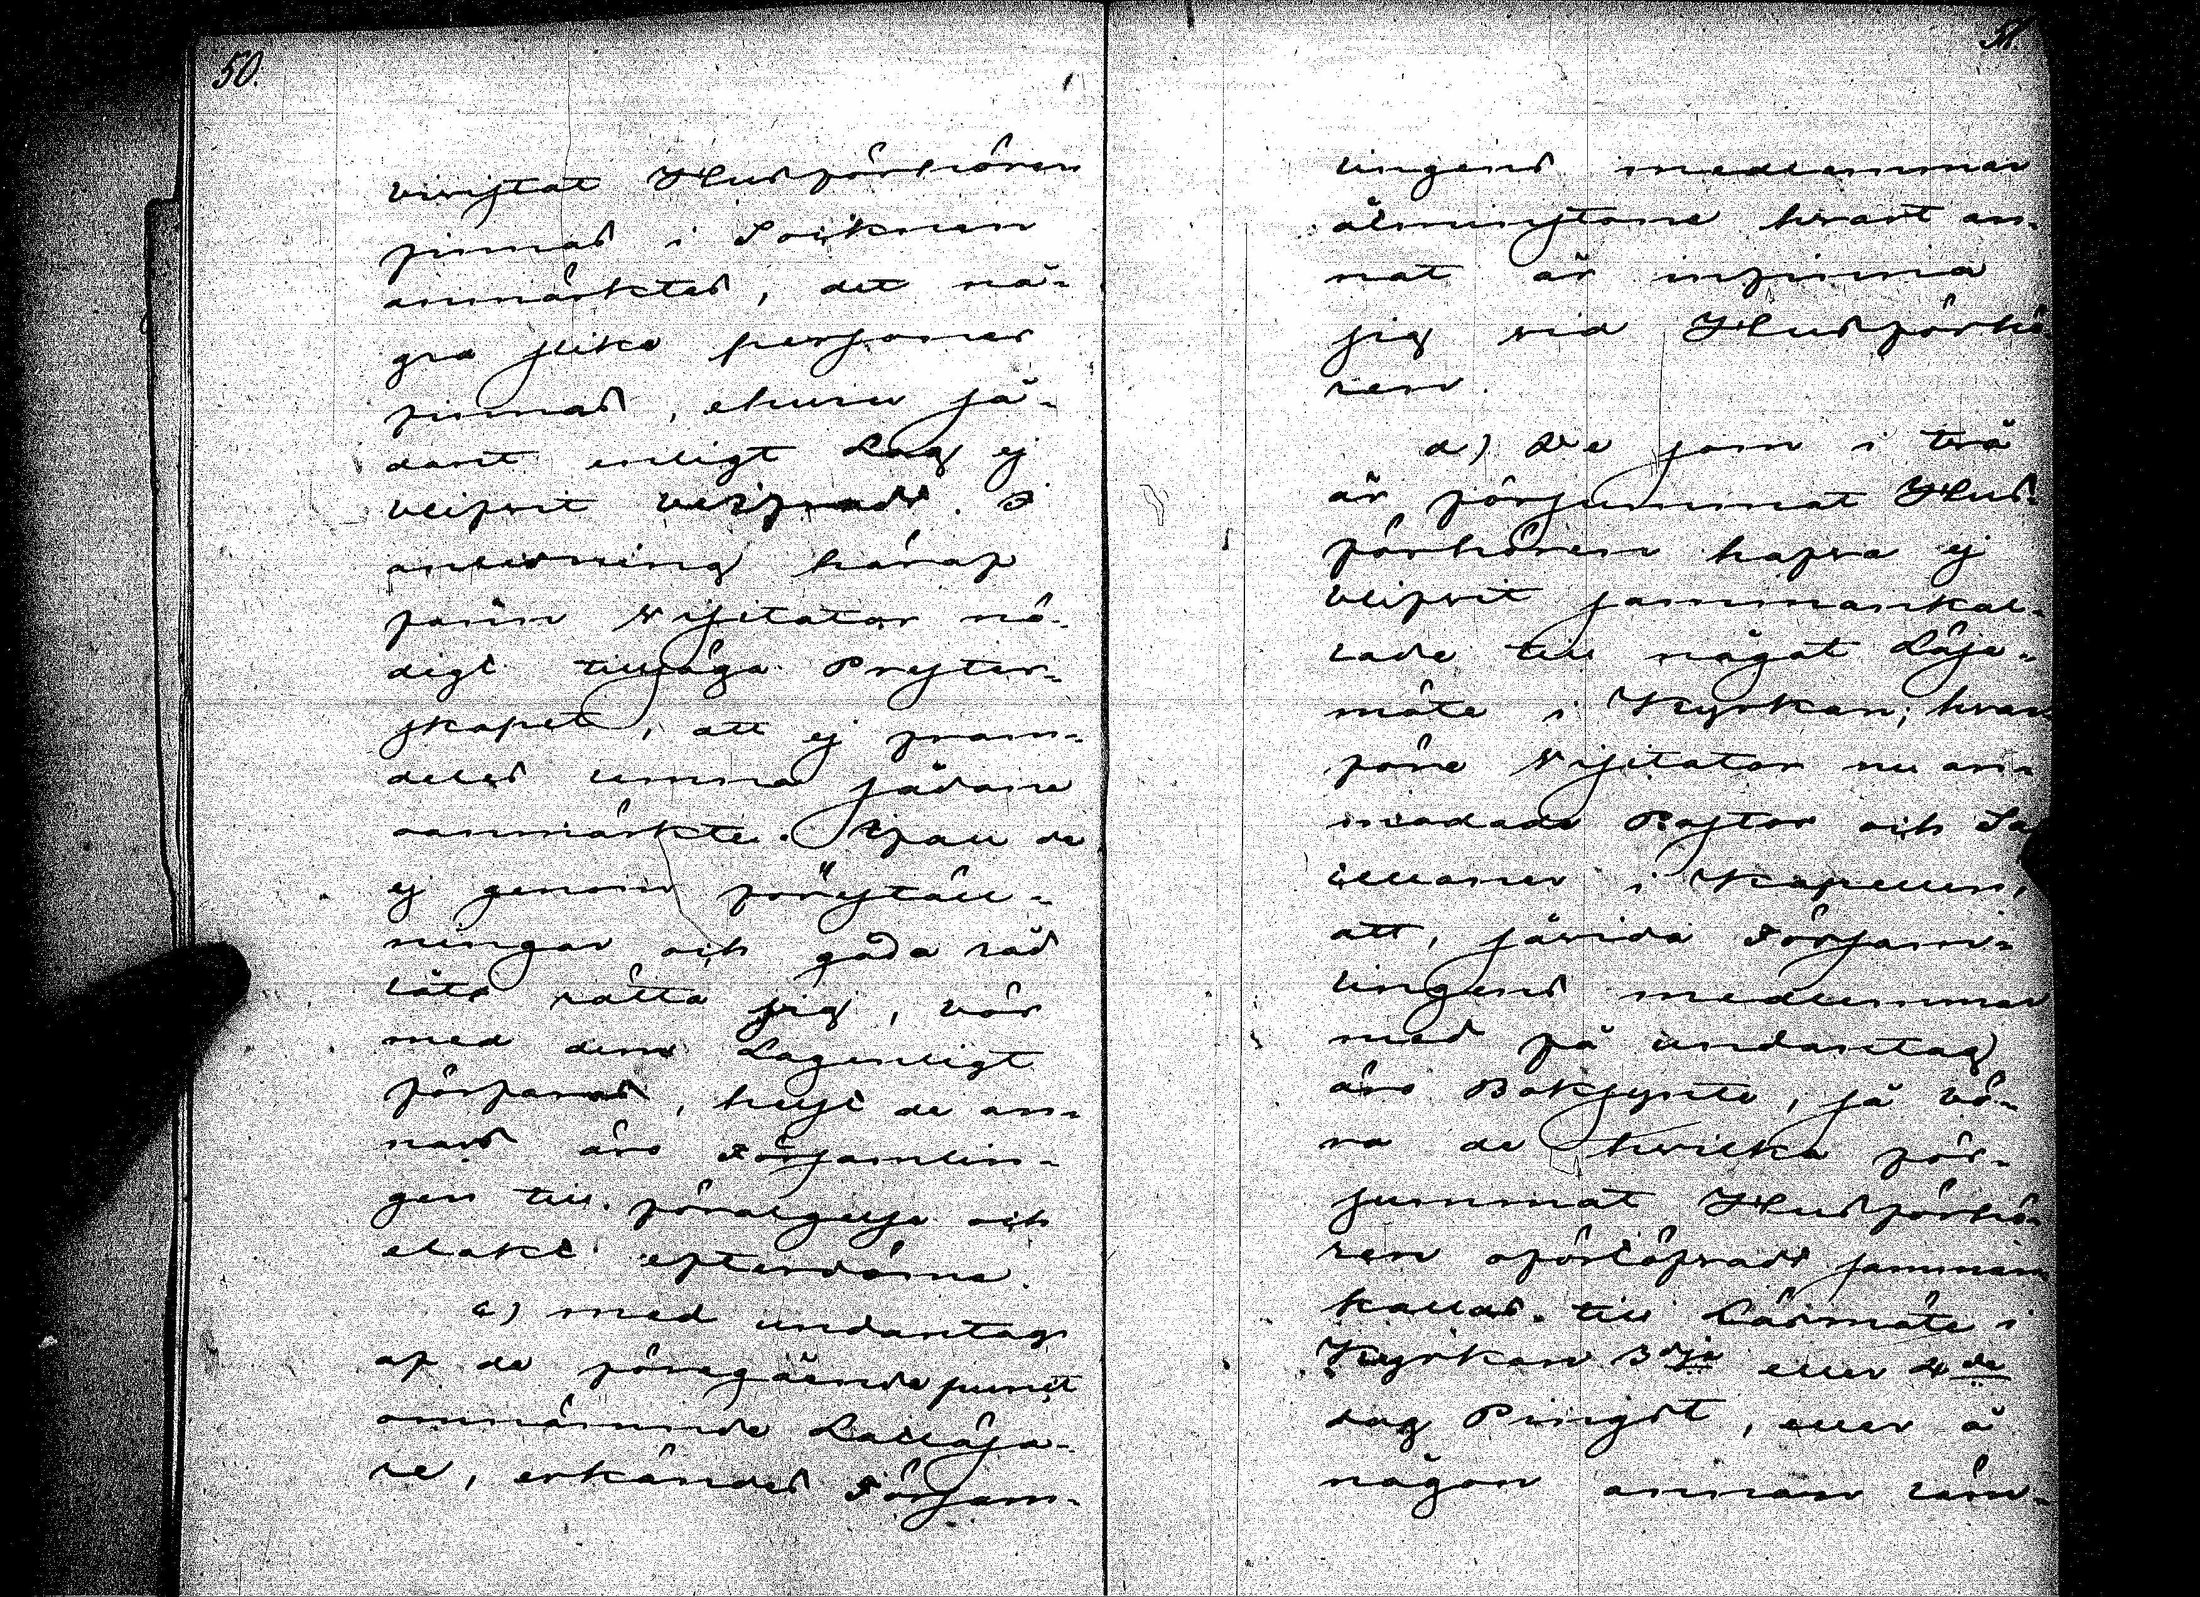 50.
bivistat Husförhören
finnas i Soiknen
anmärktes, det nå-
gra slika personer
finnas, ehuru så-
dant enligt Lag ej
blifvit beifradt. I
anledning häraf
fann Visitator nö-
digt tillsäga Prester-
skapet, att ej fram-
deles lemna sådane
oanmärkte. Skall de
ej genom föreställ-
ningar och goda råd
låta rätta sig, bör
med dem Lagenligt
förfaras, helst de an-
nars äro Församlin-
gen till förargelse och
elakt efterdöme.
c) med undantag
af de föregående punct
omnämnde Lättsja-
re, erkändes Försam-
51.
lingens medlemmar
åtminstone hvart an-
nat år infinna
sig vid Husförhö
ren.
d) De som i två
år försummat Hus-
förhören hafva ej
blifvit sammankal-
lade till något Läse-
möte i Kyrkan; hvar-
före Visitator nu an-
modade Pastor och Sa
cellaner i Kapellen,
att, såvida Försam-
lingens medlemmar
med få undantag
äro Boksynte, så bö-
ra de hvilka för-
summat Husförhö-
ren oförtöfvadt samman
kallas till Läsmöte i
Kyrkan 3dje eller 4de
dag Pingst, eller å
någon annan läm-